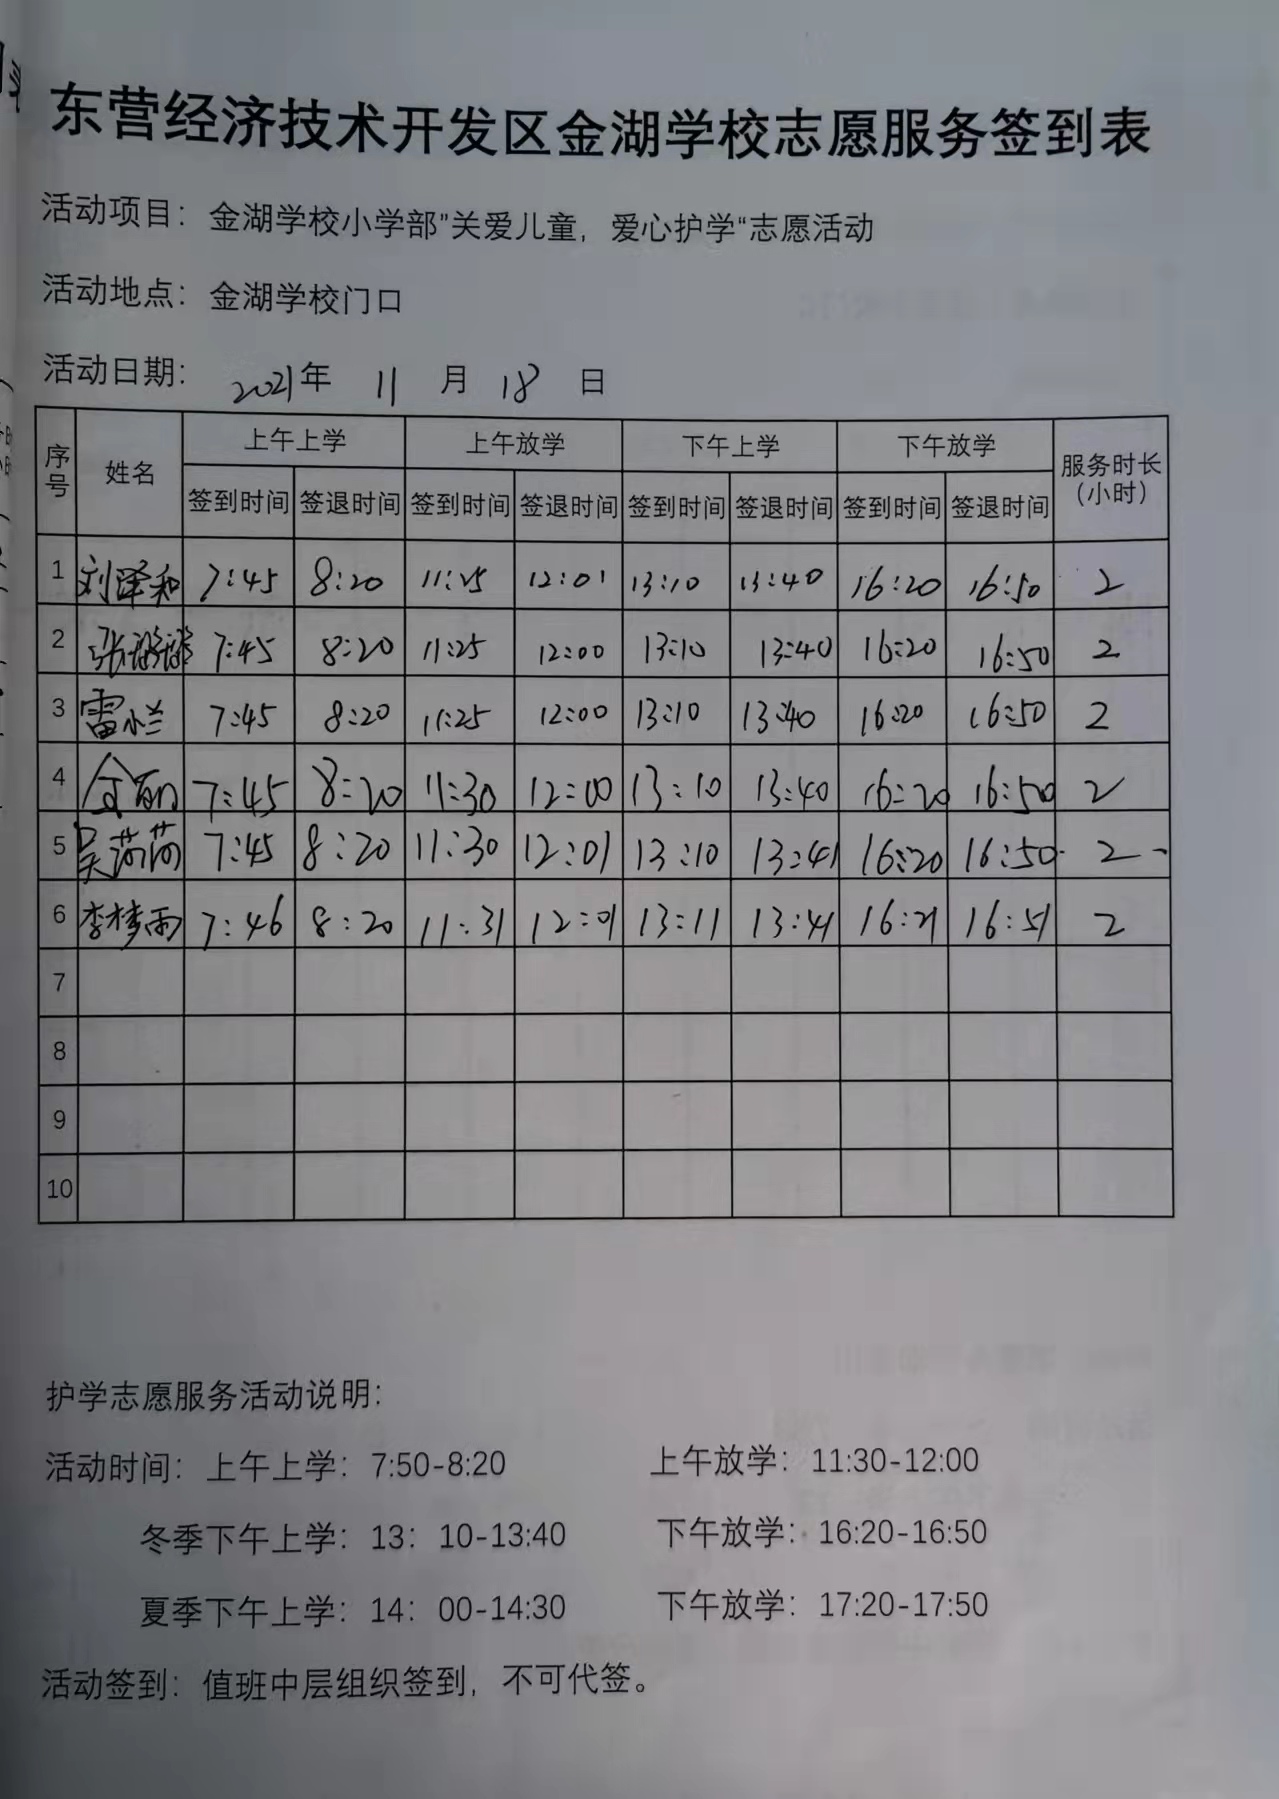 东营经济技术开发区金湖学校志愿服务签到表
活动项目：金湖学校小学部"关爱儿童，爱心护学"志愿活动
活动地点：金湖学校门口
活动日期： 2021年 11 月 18 日
序号 姓名 上午上学 上午放学 下午上学 下午放学 服务时长（小时）
签到时间 签退时间 签到时间 签退时间 签到时间 签退时间 签到时间 签退时间
1 刘泽和 7:45 8:20 11:25 12:01 13:10 13:40 16:20 16:50 2
2 张 7:45 8:20 11:25 12:00 13:10 13:40 16:20 16:50 2
3 雷小兰 7:45 8:20 11:25 12:00 13:10 13:40 16:20 16:50 2
4 7:45 8:20 11:30 12:00 13:10 13:40 16:20 16:50 2
5 吴苪苪 7:45 8:20 11:30 12:01 13:10 13:41 16:20 16:50 2
6 李梦雨 7:46 8:20 11:31 12:01 13:11 13:41 16:21 16:51 2
7
8
9
10
护学志愿服务活动说明：
活动时间：上午上学：7:50-8:20 上午放学：11:30-12:00
冬季下午上学：13：10-13:40 下午放学：16:20-16:50
夏季下午上学：14：00-14:30 下午放学：17:20-17:50
活动签到：值班中层组织签到，不可代签。